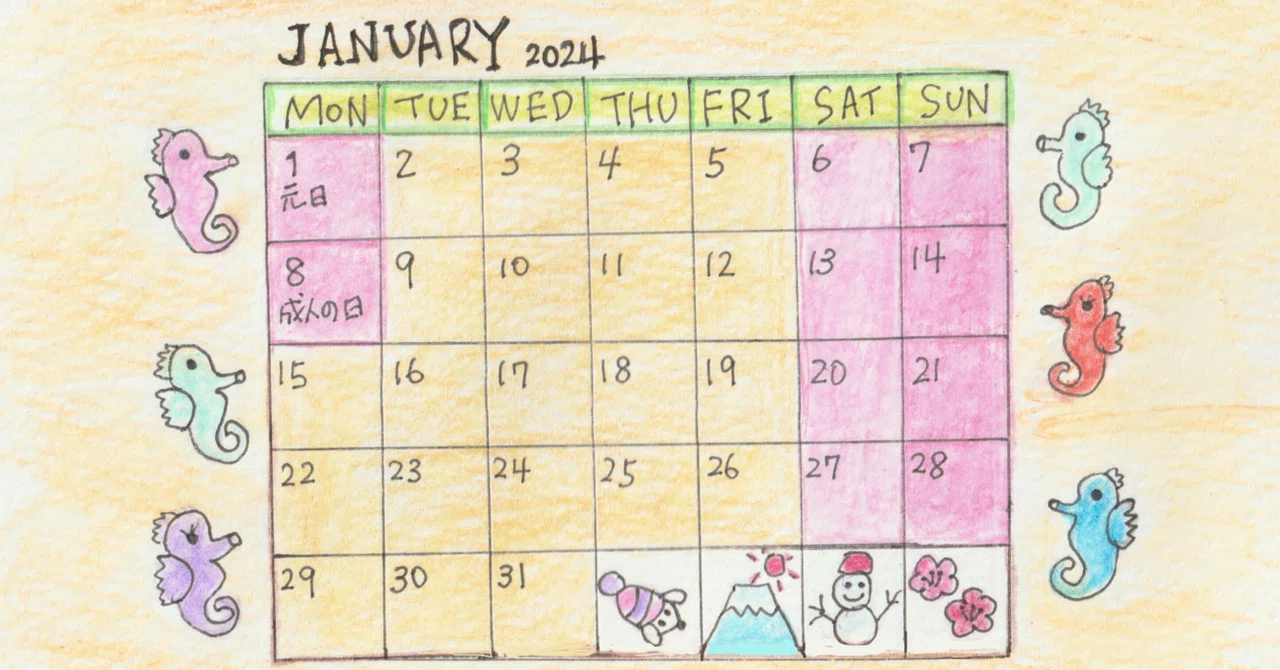 JANUARY 2024
MON TUE WED THU FRI SAT SUN
1 2 3 4 5 6 7
元日
8 9 10 11 12 13 14
成人の日
15 16 17 18 19 20 21
22 23 24 25 26 27 28
29 30 31